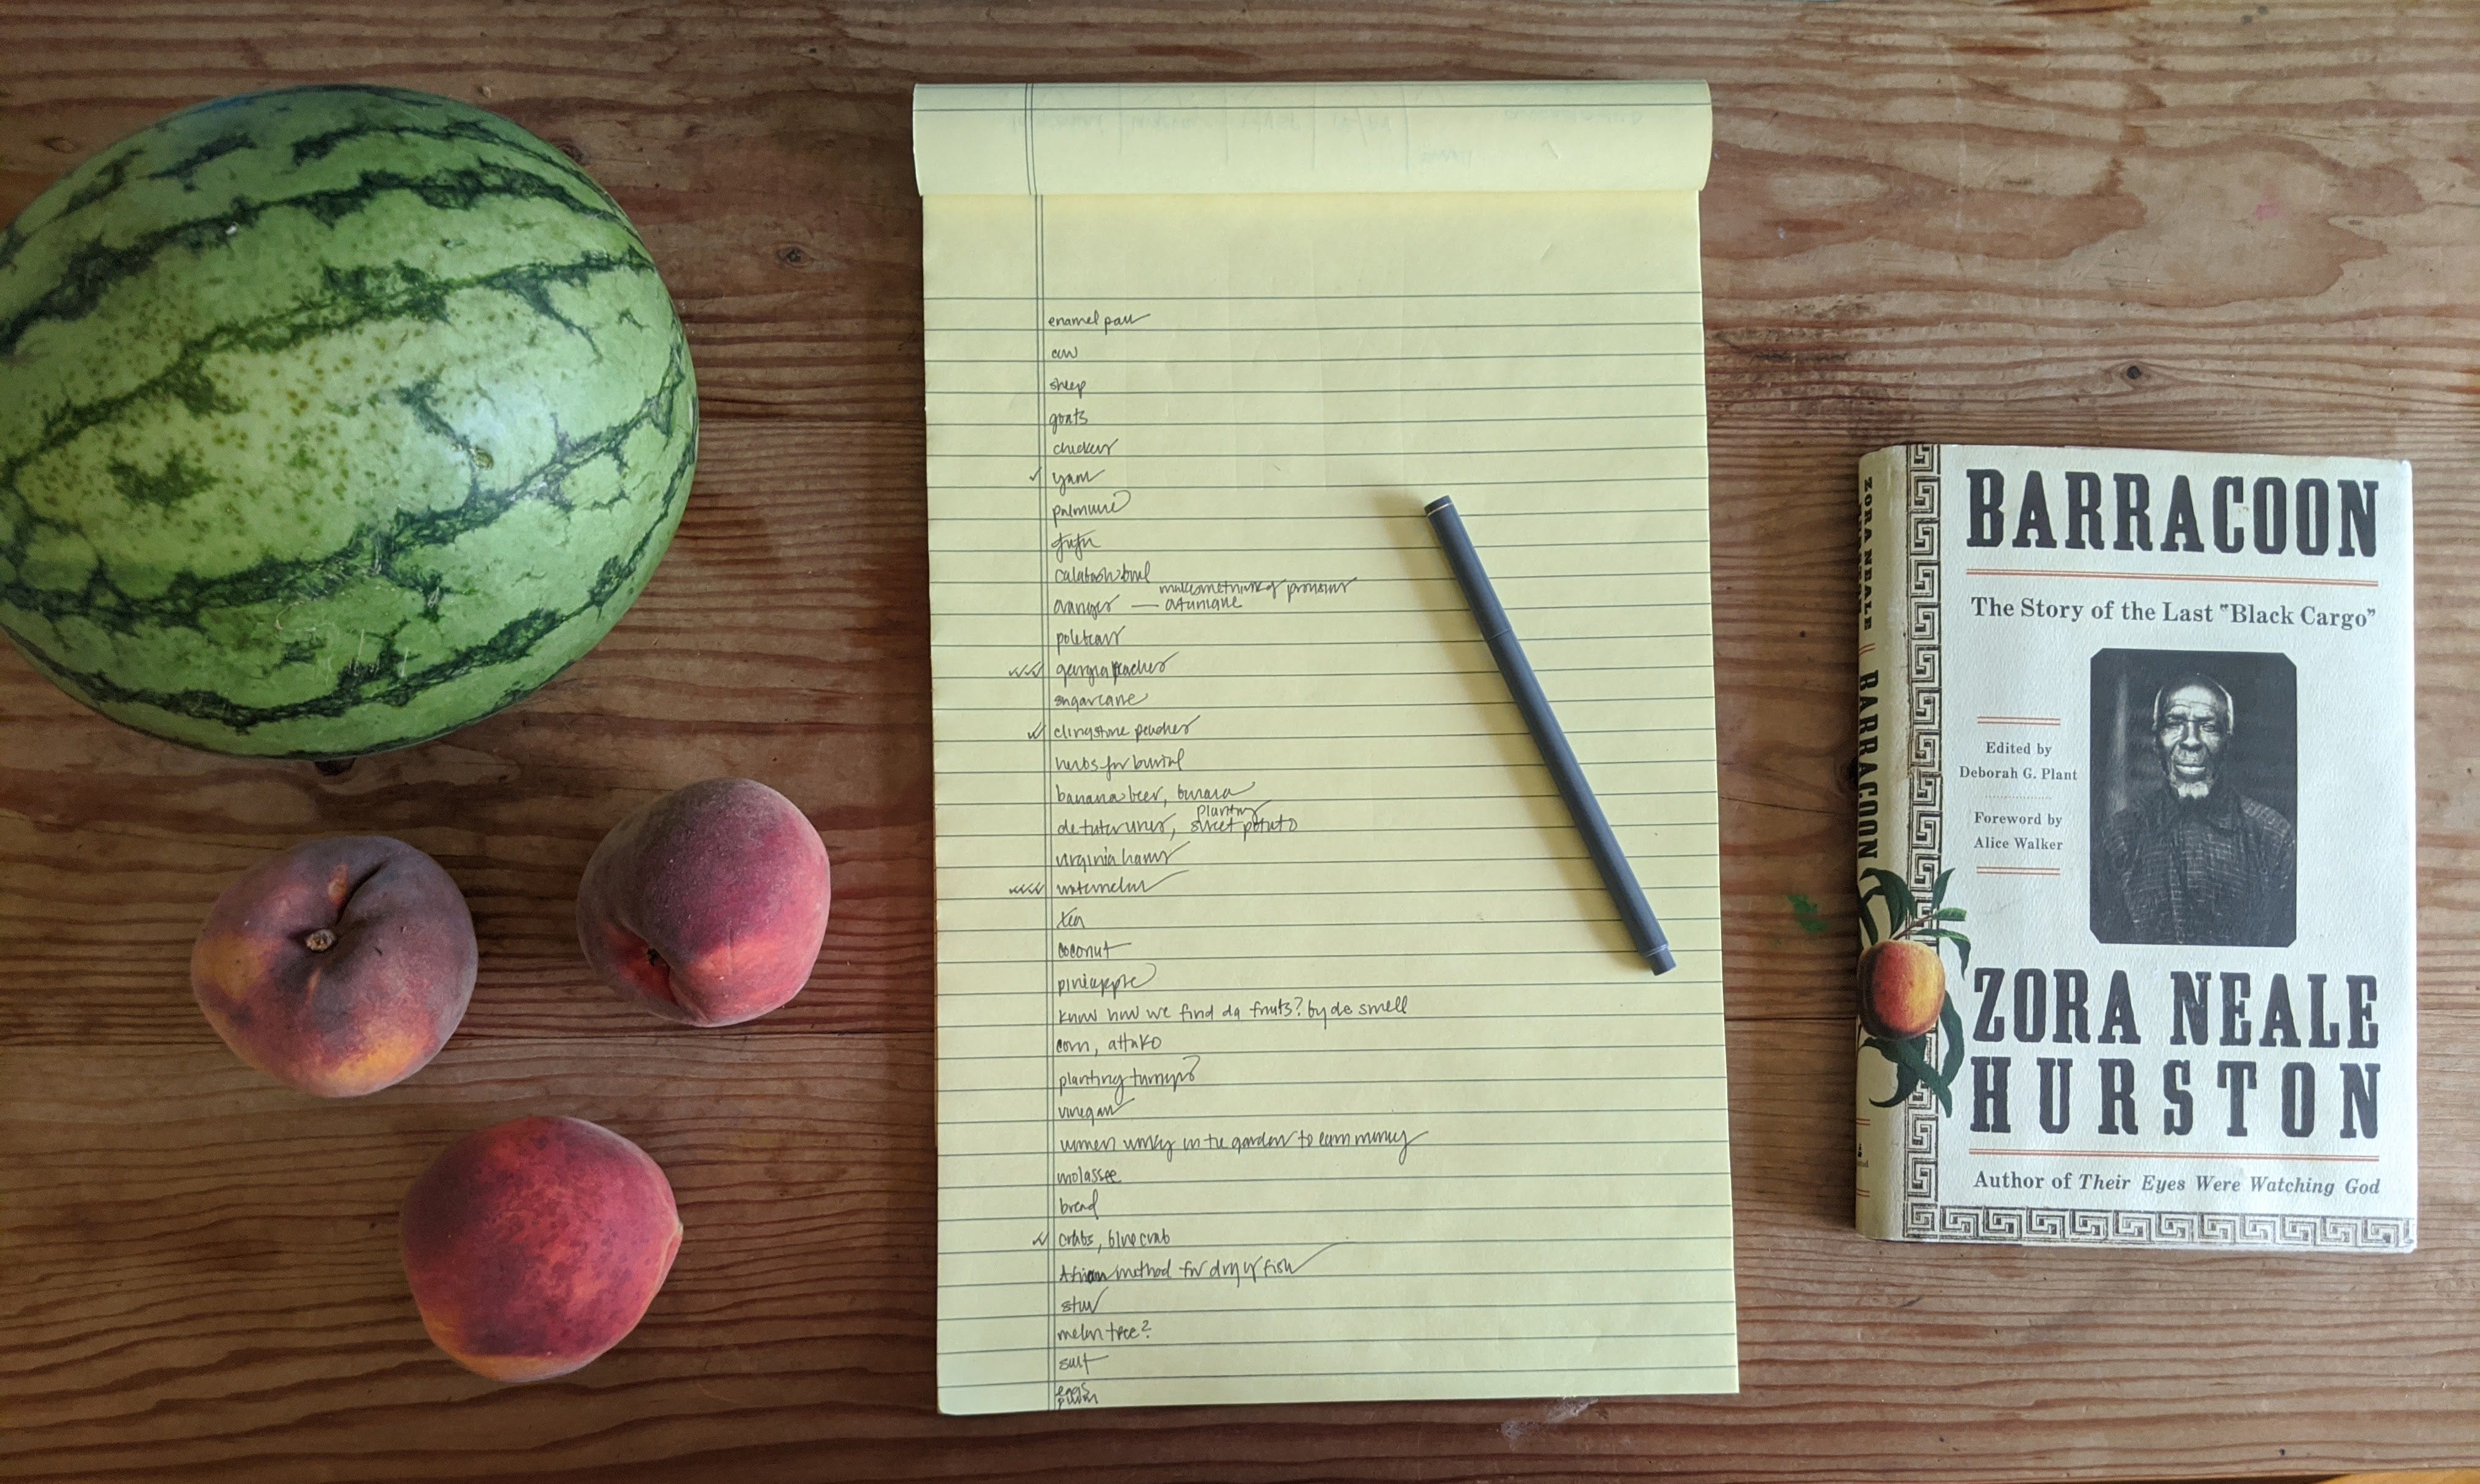 enamel pan
cow
sheep
goats
chicken
yam
palm
fufu
calabash bowl
oranges — unique
polebeans
georgia peaches
sugarcane
clingstone peaches
herbs for burial
banana beer, banana
planting
sweet potato
virginia hams
watermelon
tea
coconut
pineapple
know how we find da fruits? by de smell
corn, attako
planting turnips
vinegar
women working in the garden to earn money
molassee
bread
crabs, blue crab
African method for drying fish
stew
melon tree?
salt
eggs
ZORA NEALE
BARRACOON
BARRACOON
The Story of the Last "Black Cargo"
Edited by
Deborah G. Plant
Foreword by
Alice Walker
ZORA NEALE
HURSTON
Author of Their Eyes Were Watching God